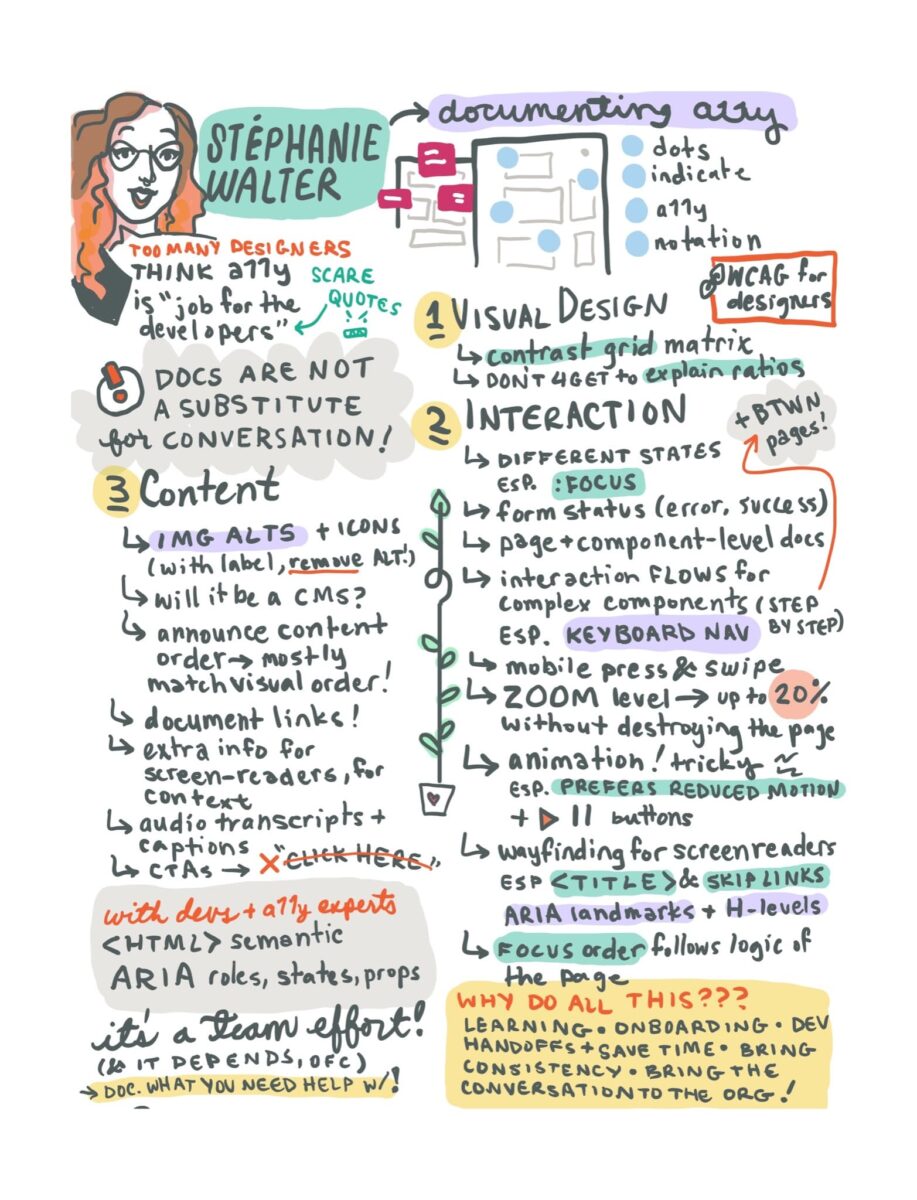 STÉPHANIE
WALTER
documenting a11y
dots
indicate
a11y
notation
TOO MANY DESIGNERS
THINK a11y
is "job for the
developers"
SCARE
QUOTES
!!
DOCS ARE NOT
A SUBSTITUTE
for CONVERSATION!
WCAG for
designers
1 VISUAL DESIGN
contrast grid matrix
DON'T 4GET to explain ratios
2 INTERACTION
+ BTWN
pages!
DIFFERENT STATES
ESP. :FOCUS
form status (error, success)
page + component-level docs
interaction FLOWS for
complex components (STEP
BY STEP)
ESP. KEYBOARD NAV
mobile press & swipe
ZOOM level → up to 20%
without destroying the page
animation! tricky
ESP. PREFERS REDUCED MOTION
+ ▶ || buttons
wayfinding for screenreaders
ESP <TITLE> & SKIP LINKS
ARIA landmarks + H-levels
FOCUS order follows logic of
the page
3 Content
IMG ALTS + ICONS
(with label, remove ALT!)
will it be a CMS?
announce content
order → mostly
match visual order!
document links!
extra info for
screen-readers, for
context
audio transcripts +
captions
CTAs → X "CLICK HERE"
with devs + a11y experts
<HTML> semantic
ARIA roles, states, props
it's a team effort!
(& IT DEPENDS, OFC)
→ DOC. WHAT YOU NEED HELP W/!
WHY DO ALL THIS???
LEARNING • ONBOARDING • DEV
HANDOFFS + SAVE TIME • BRING
CONSISTENCY • BRING THE
CONVERSATION TO THE ORG!